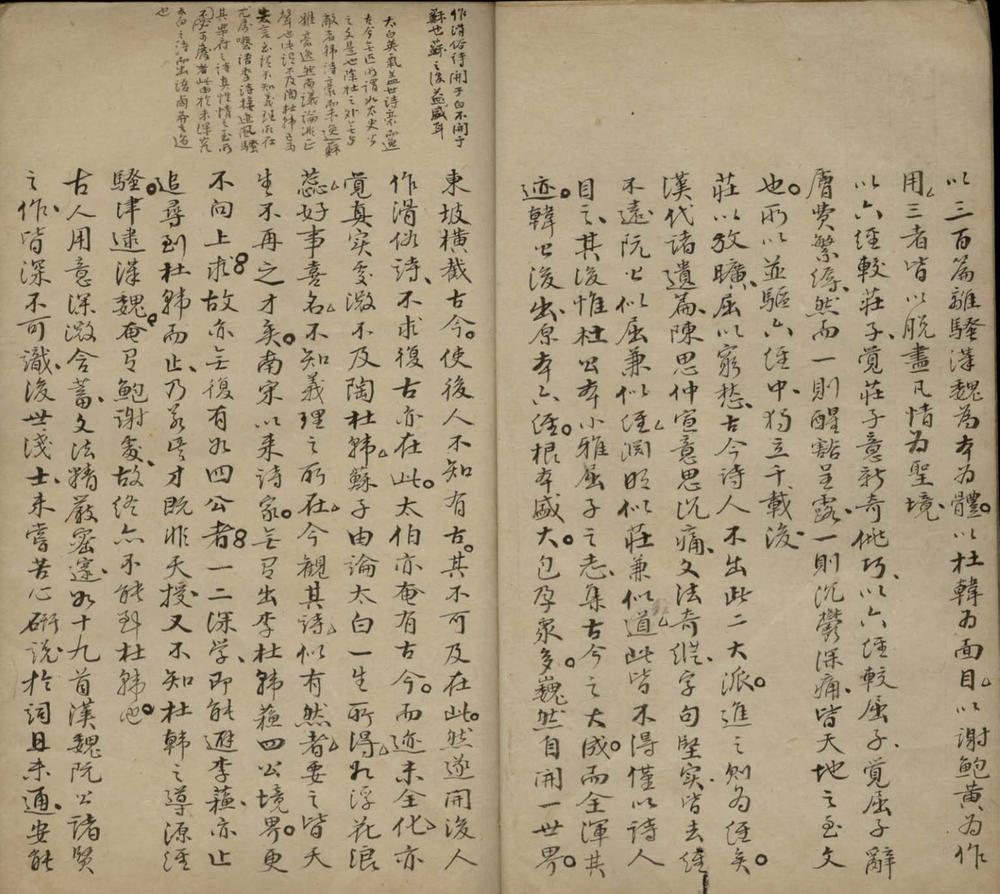 以三百篇離騷漢魏為本為體。以杜韓為面目、以謝鮑黃為作
用、三者皆以脫盡凡情為聖境、
以六經較莊子、覺莊子意新奇佻巧、以六經較屈子、覺屈子辭
膚費繁縟、然而一則醒豁呈露、一則沉鬱深痛、皆天地之至文
也。所以並驅六經中、獨立千載後、
莊以放曠、屈以窮愁、古今詩人不出此二大派。進之則為經矣。
漢代諸遺篇、陳思仲宣意思沉痛、文法奇縱、字句堅實、皆去經
不遠、阮公似屈兼似經、淵明似莊兼似道、此皆不得僅以詩人
目之、其後惟杜公本小雅屈子之志、集古今之大成。而全渾其
迹。韓公後出、原本六經。根本盛大。包孕眾多。巍然自開一世界。
東坡橫截古今。使後人不知有古。其不可及在此。然遂開後人
作滑俗詩、不求復古亦在此。太白亦奄有古今。而迹未全化、亦
覺真實處微不及陶杜韓、蘇子由論太白一生所得、如浮花浪
蕊、好事喜名、不知義理之所在、今觀其詩、似有然者、要之皆天
生不再之才矣。南宋以來詩家。無有出李杜韓蘇四公境界。更
不向上求。故亦無復有如四公者。一二深學、即能避李蘇、亦止
追尋到杜韓而止、乃若其才既非天授、又不知杜韓之導源經
騷。津逮漢魏。奄有鮑謝處、故終亦不能到杜韓也。
古人用意深微含蓄、文法精嚴密邃、如十九首漢魏阮公諸賢
之作、皆深不可識、後世淺士、未嘗苦心研說、於詞且未通、安能
作滑俗詩開于白不開于
蘇也蘇之後益盛耳
太白英氣蓋世詩豪逸
古今無匹所謂如太史公
之文是也除杜之外無与
敵者韓詩豪而未逸蘇
雖豪逸然有議論派正
聲也謂不及陶杜韓立為
失言至謂不知義理所在
尤屬囈語李詩接迹風騷
其樂府之詩真性情之至